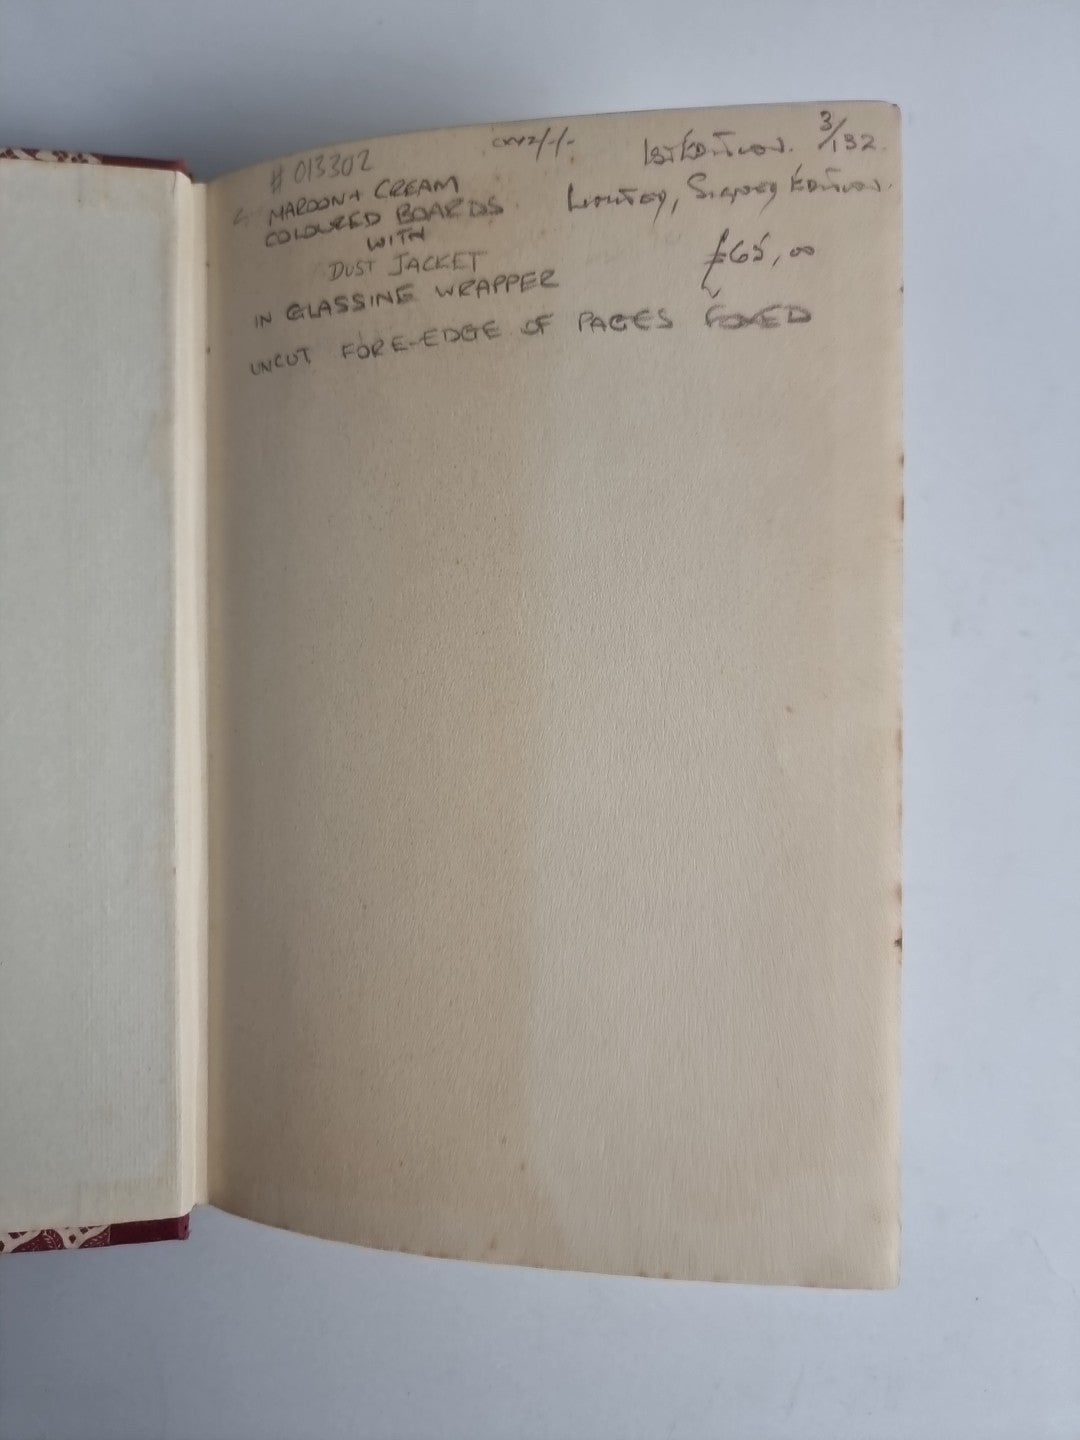 # 013302
MAROON + CREAM
COLOURED BOARDS
WITH
DUST JACKET
IN GLASSINE WRAPPER
UNCUT FORE-EDGE OF PAGES FOXED
1st Edition. 3/132.
Limited, Signed Edition.
£65,00